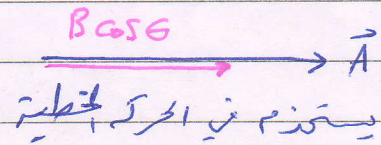 B cos θ
A
يستخدم في الحركة الخطية